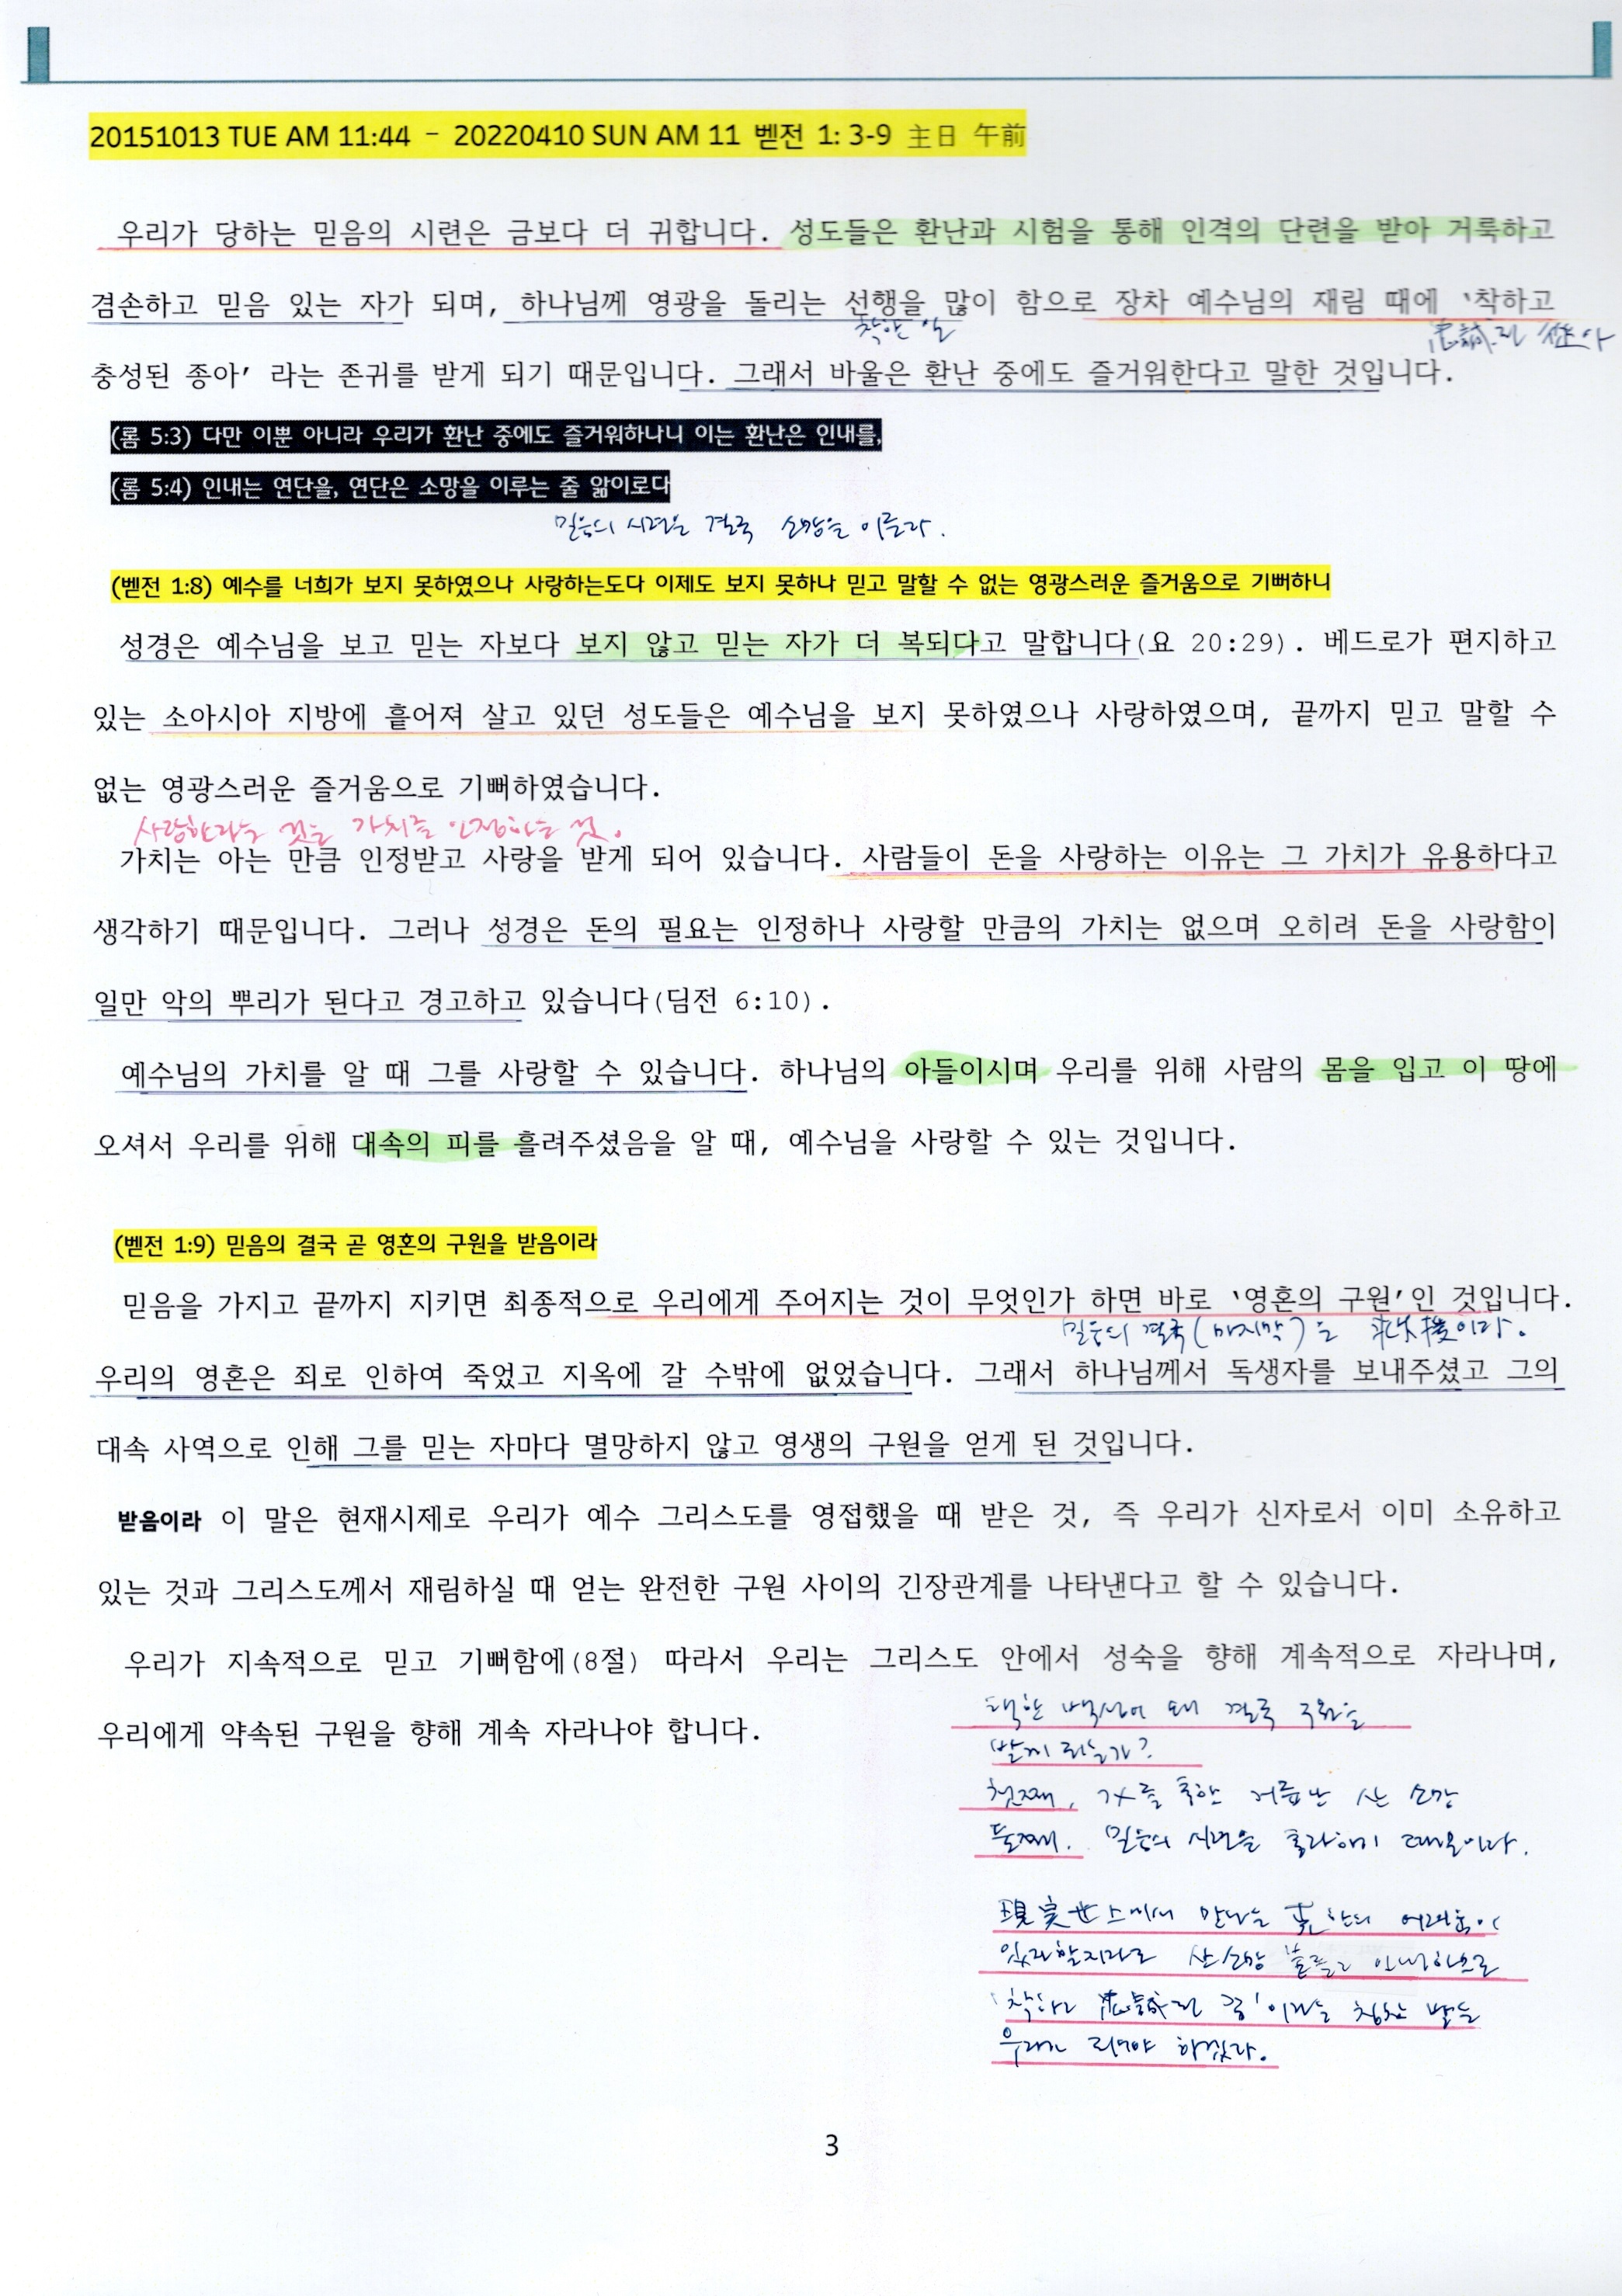 20151013 TUE AM 11:44 – 20220410 SUN AM 11 벧전 1: 3-9 主日 午前
우리가 당하는 믿음의 시련은 금보다 더 귀합니다. 성도들은 환난과 시험을 통해 인격의 단련을 받아 거룩하고
겸손하고 믿음 있는 자가 되며, 하나님께 영광을 돌리는 선행을 많이 함으로 장차 예수님의 재림 때에 ‘착하고
착한 일
忠誠된 종아
충성된 종아’ 라는 존귀를 받게 되기 때문입니다. 그래서 바울은 환난 중에도 즐거워한다고 말한 것입니다.
(롬 5:3) 다만 이뿐 아니라 우리가 환난 중에도 즐거워하나니 이는 환난은 인내를,
(롬 5:4) 인내는 연단을, 연단은 소망을 이루는 줄 앎이로다
믿음의 시련은 결국 소망을 이룬다.
(벧전 1:8) 예수를 너희가 보지 못하였으나 사랑하는도다 이제도 보지 못하나 믿고 말할 수 없는 영광스러운 즐거움으로 기뻐하니
성경은 예수님을 보고 믿는 자보다 보지 않고 믿는 자가 더 복되다고 말합니다(요 20:29). 베드로가 편지하고
있는 소아시아 지방에 흩어져 살고 있던 성도들은 예수님을 보지 못하였으나 사랑하였으며, 끝까지 믿고 말할 수
없는 영광스러운 즐거움으로 기뻐하였습니다.
사랑한다는 것은 가치를 인정하는 것.
가치는 아는 만큼 인정받고 사랑을 받게 되어 있습니다. 사람들이 돈을 사랑하는 이유는 그 가치가 유용하다고
생각하기 때문입니다. 그러나 성경은 돈의 필요는 인정하나 사랑할 만큼의 가치는 없으며 오히려 돈을 사랑함이
일만 악의 뿌리가 된다고 경고하고 있습니다(딤전 6:10).
예수님의 가치를 알 때 그를 사랑할 수 있습니다. 하나님의 아들이시며 우리를 위해 사람의 몸을 입고 이 땅에
오셔서 우리를 위해 대속의 피를 흘려주셨음을 알 때, 예수님을 사랑할 수 있는 것입니다.
(벧전 1:9) 믿음의 결국 곧 영혼의 구원을 받음이라
믿음을 가지고 끝까지 지키면 최종적으로 우리에게 주어지는 것이 무엇인가 하면 바로 ‘영혼의 구원’인 것입니다.
믿음의 결국(마지막)는 救援이다.
우리의 영혼은 죄로 인하여 죽었고 지옥에 갈 수밖에 없었습니다. 그래서 하나님께서 독생자를 보내주셨고 그의
대속 사역으로 인해 그를 믿는 자마다 멸망하지 않고 영생의 구원을 얻게 된 것입니다.
받음이라 이 말은 현재시제로 우리가 예수 그리스도를 영접했을 때 받은 것, 즉 우리가 신자로서 이미 소유하고
있는 것과 그리스도께서 재림하실 때 얻는 완전한 구원 사이의 긴장관계를 나타낸다고 할 수 있습니다.
우리가 지속적으로 믿고 기뻐함에(8절) 따라서 우리는 그리스도 안에서 성숙을 향해 계속적으로 자라나며,
우리에게 약속된 구원을 향해 계속 자라나야 합니다.
택한 백성이 왜 결국 구원을
받게 되는가?
첫째, 거듭난 산 소망
둘째. 믿음의 시련을 통과하기 때문이다.
現実世上에서 만나는 어려움이
있다할지라도 산 소망 붙들고 인내함으로
‘착하고 忠誠된 종’이라는 칭찬 받는
우리가 되어야 하겠다.
3